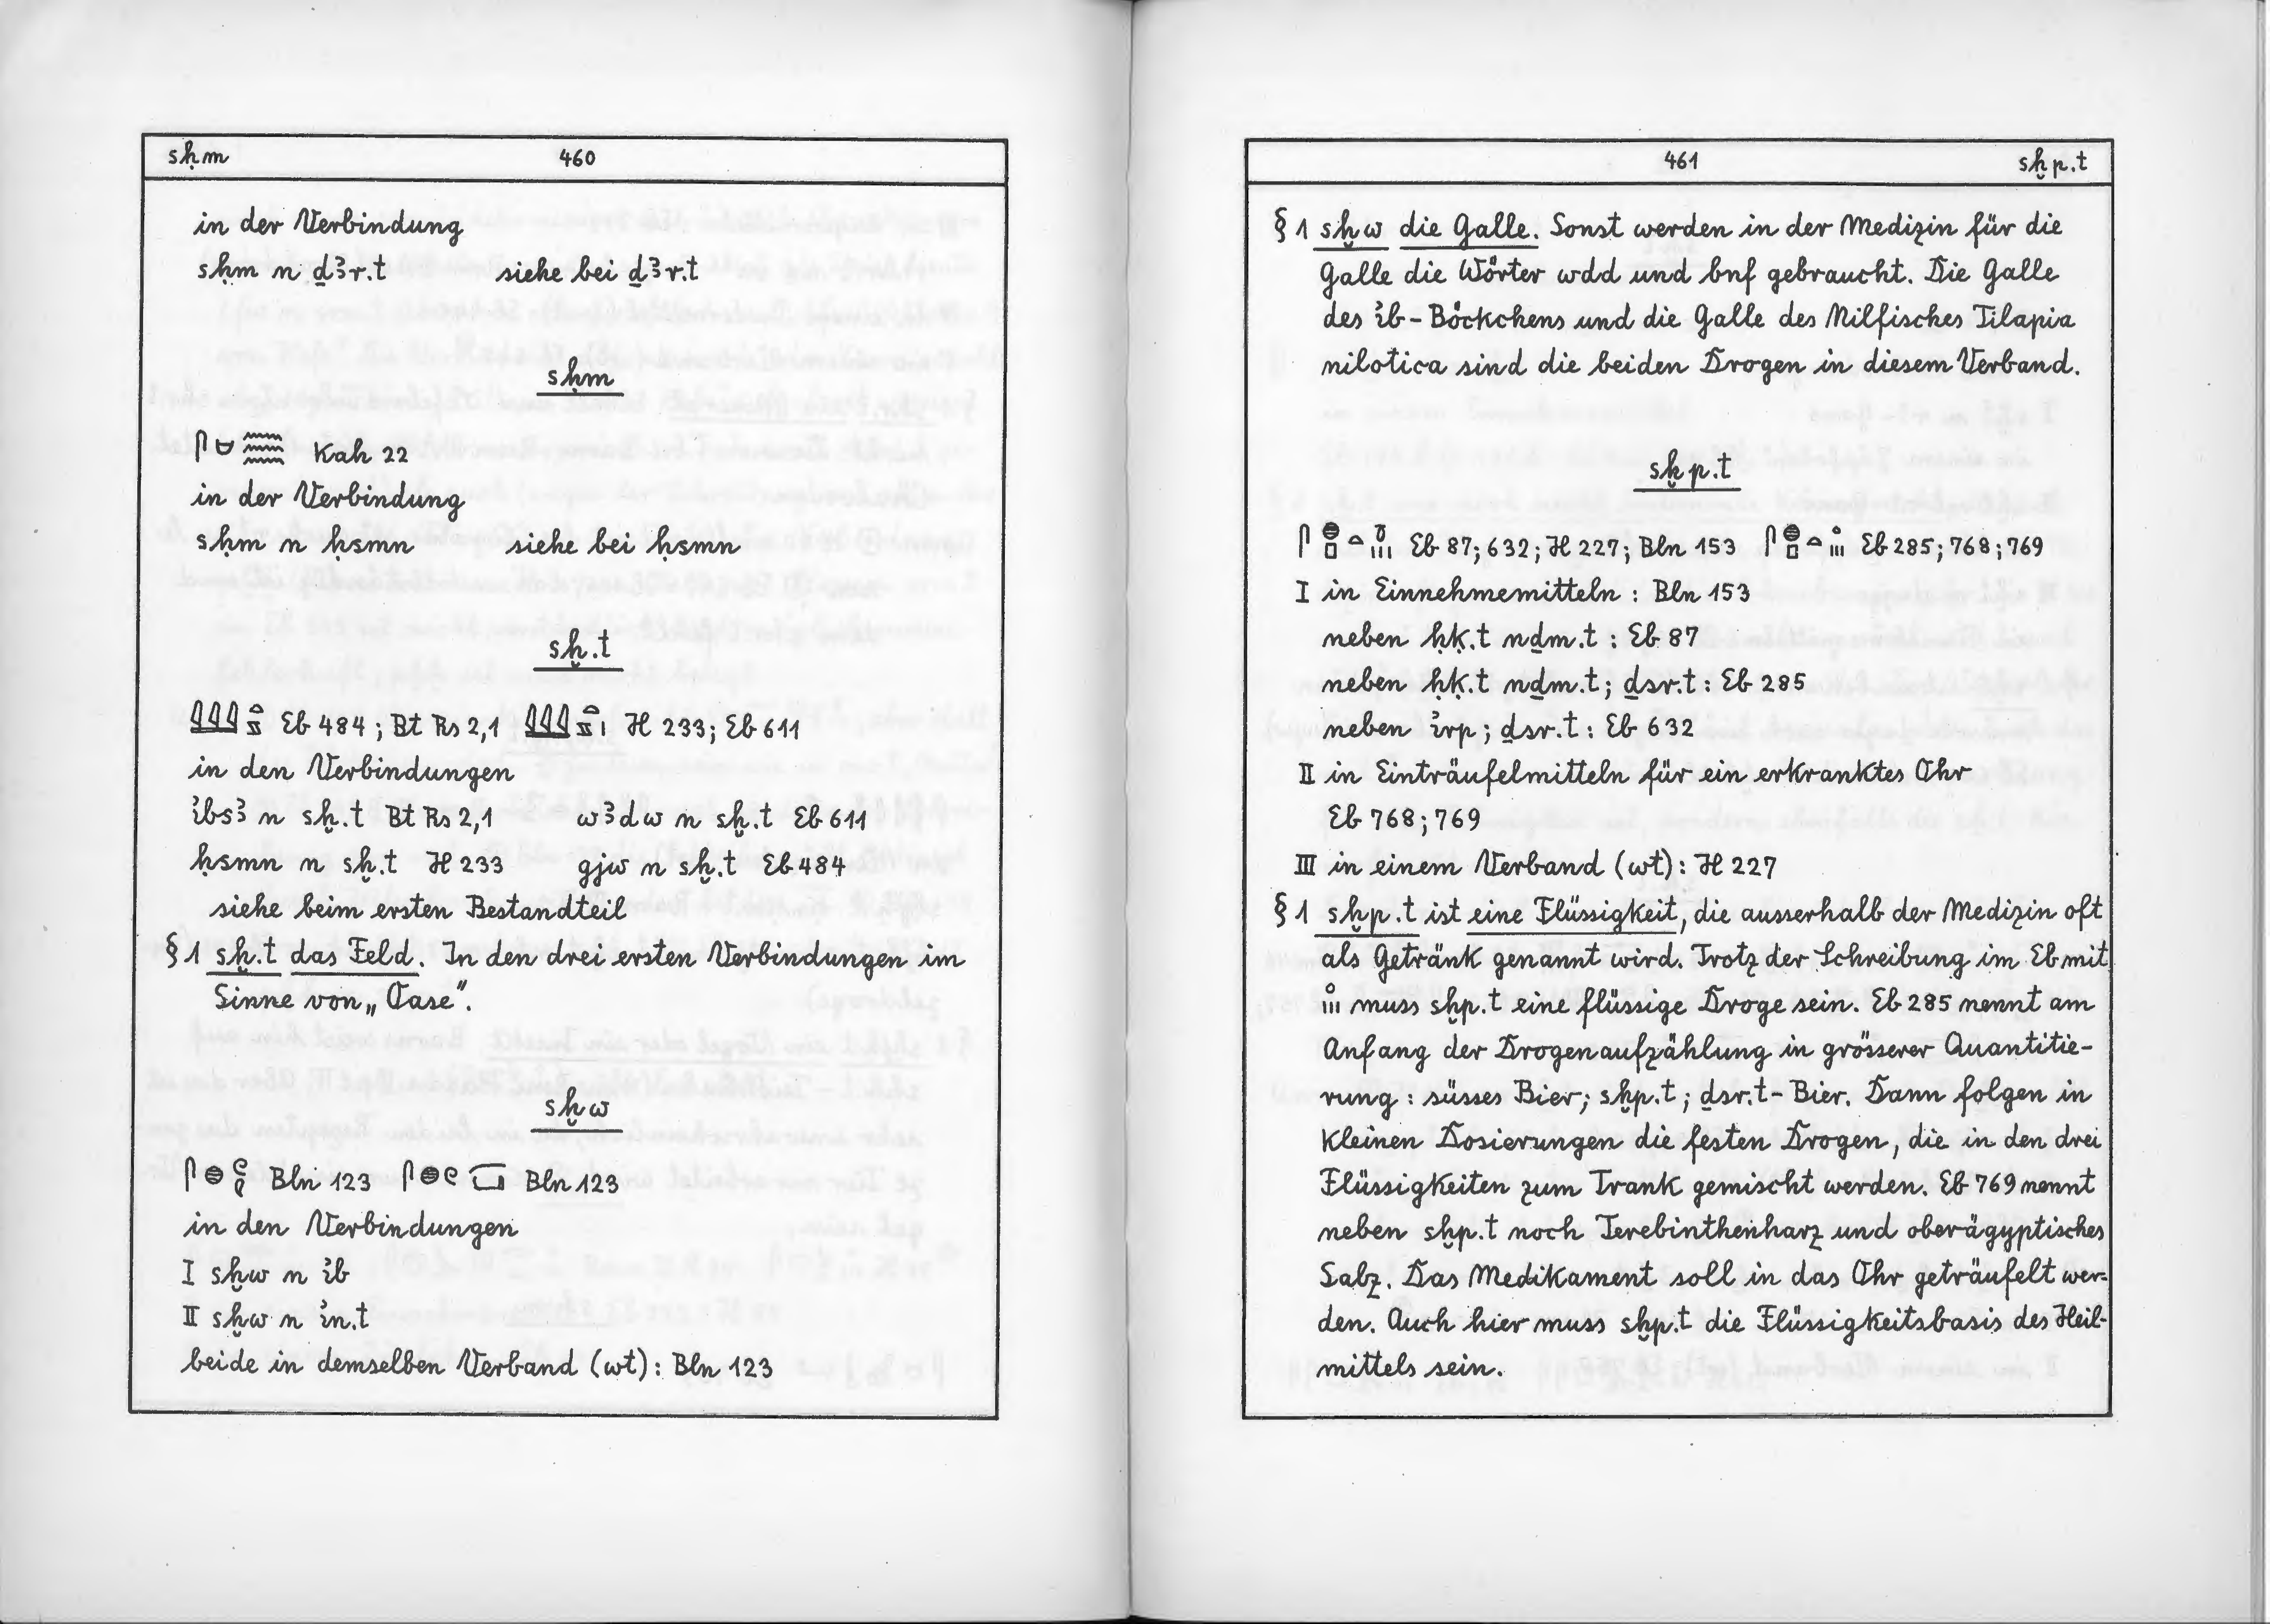 sḥm 460
in der Verbindung
sḥm n ḏꜣr.t siehe bei ḏꜣr.t
sḥm
Kah 22
in der Verbindung
sḥm n ḥsmn siehe bei ḥsmn
sḫ.t
Eb 484; Bt Rs 2,1 H 233; Eb 611
in den Verbindungen
ỉbsꜣ n sḫ.t Bt Rs 2,1 wꜣdw n sḫ.t Eb 611
ḥsmn n sḫ.t H 233 gjw n sḫ.t Eb 484
siehe beim ersten Bestandteil
§ 1 sḫ.t das Feld. In den drei ersten Verbindungen im
Sinne von „Oase".
sḫw
Bln 123 Bln 123
in den Verbindungen
I sḫw n ỉb
II sḫw n ỉn.t
beide in demselben Verband (wt): Bln 123
461 sḫp.t
§ 1 sḫw die Galle. Sonst werden in der Medizin für die
Galle die Wörter wdd und bnf gebraucht. Die Galle
des ỉb-Böckchens und die Galle des Nilfisches Tilapia
nilotica sind die beiden Drogen in diesem Verband.
sḫp.t
Eb 87; 632; H 227; Bln 153 Eb 285; 768; 769
I in Einnehmemitteln: Bln 153
neben ḥḳ.t nḏm.t: Eb 87
neben ḥḳ.t nḏm.t; ḏsr.t: Eb 285
neben ỉrp; ḏsr.t: Eb 632
II in Einträufelmitteln für ein erkranktes Ohr
Eb 768; 769
III in einem Verband (wt): H 227
§ 1 sḫp.t ist eine Flüssigkeit, die ausserhalb der Medizin oft
als Getränk genannt wird. Trotz der Schreibung im Eb mit
muss sḫp.t eine flüssige Droge sein. Eb 285 nennt am
Anfang der Drogenaufzählung in grösserer Quantitie-
rung: süsses Bier; sḫp.t; ḏsr.t-Bier. Dann folgen in
kleinen Dosierungen die festen Drogen, die in den drei
Flüssigkeiten zum Trank gemischt werden. Eb 769 nennt
neben sḫp.t noch Terebinthenharz und oberägyptisches
Salz. Das Medikament soll in das Ohr geträufelt wer-
den. Auch hier muss sḫp.t die Flüssigkeitsbasis des Heil-
mittels sein.